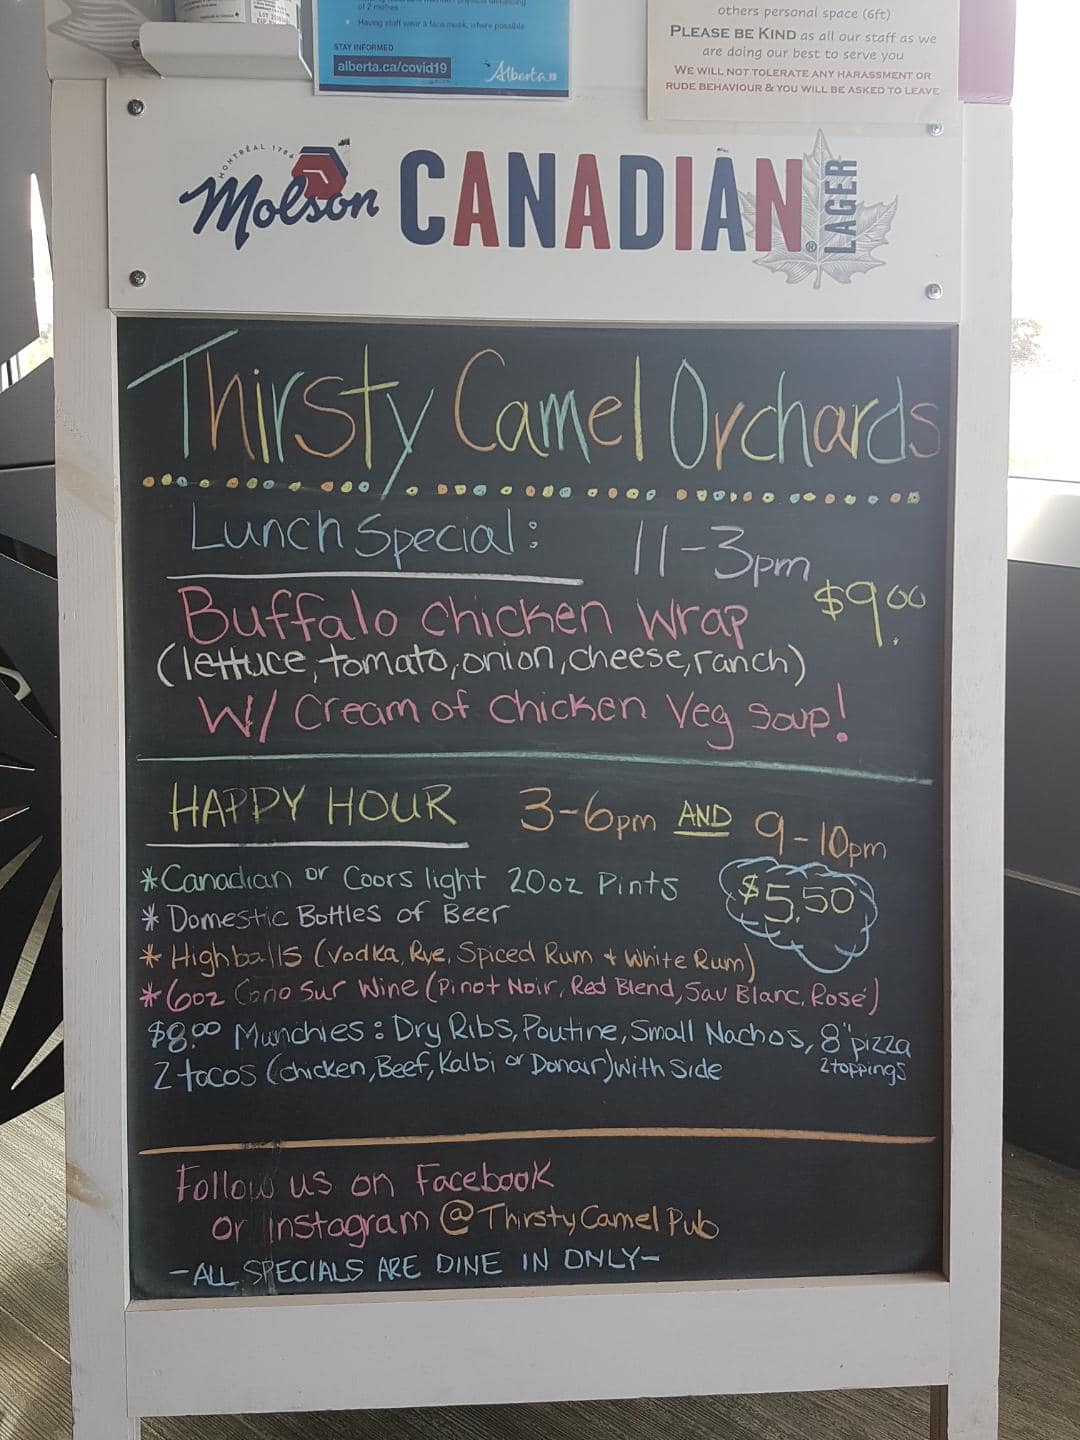 of 2 metres
Having staff wear a face mask, where possible
STAY INFORMED
alberta.ca/covid19
Alberta
others personal space (6ft)
PLEASE BE KIND as all our staff as we
are doing our best to serve you
WE WILL NOT TOLERATE ANY HARASSMENT OR
RUDE BEHAVIOUR & YOU WILL BE ASKED TO LEAVE
MONTRÉAL 1786
Molson CANADIAN LAGER
Thirsty Camel Orchards
Lunch Special: 11-3pm
Buffalo Chicken Wrap $9.00
(lettuce, tomato, onion, cheese, ranch)
W/ Cream of Chicken Veg Soup!
HAPPY HOUR 3-6pm AND 9-10pm
*Canadian or Coors light 20oz Pints $5.50
* Domestic Bottles of Beer
* Highballs (Vodka, Rye, Spiced Rum + White Rum)
*6oz Cono Sur Wine (Pinot Noir, Red Blend, Sau Blanc, Rosé)
$8.00 Munchies: Dry Ribs, Poutine, Small Nachos, 8" pizza
2 tacos (chicken, Beef, Kalbi or Donair) with Side 2 toppings
Follow us on Facebook
or Instagram @ThirstyCamelPub
-ALL SPECIALS ARE DINE IN ONLY-